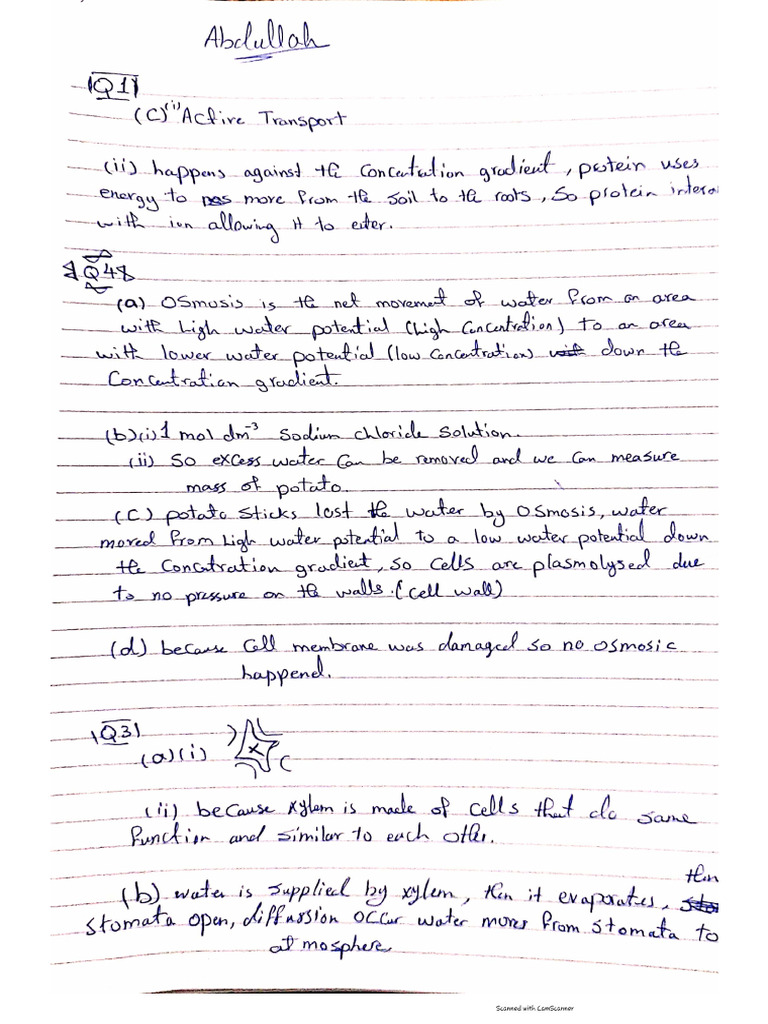 Abdullah
Q1
(C)(i) Active Transport
(ii) happens against the Concentration gradient, protein uses
energy to pas move from the soil to the roots, so protein
with ion allowing it to enter.
Q4
(a) Osmosis is the net movement of water from an area
with high water potential (high Concentration) to an area
with lower water potential (low concentration) down the
Concentration gradient.
(b)(i) 1 mol dm⁻³ Sodium chloride solution.
(ii) So excess water can be removed and we can measure
mass of potato.
(C) potato sticks lost the water by osmosis, water
moved from high water potential to a low water potential down
the Concntration gradient, so cells are plasmolysed due
to no pressure on the walls. (cell wall)
(d) because cell membrane was damaged so no osmosic
happend.
Q3
(a)(i) X
(ii) because xylem is made of cells that do same
function and similar to each other.
then
(b) water is supplied by xylem, then it evaporates,
stomata open, diffussion occur water moves from stomata to
atmosphere.
Scanned with CamScanner